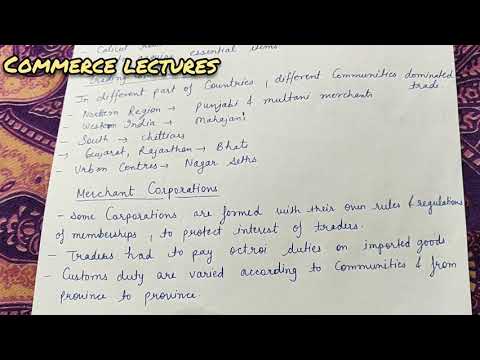 COMMERCE LECTURES
- Calicut
essential items
Trading
In different part of Countries, different Communities dominated
trade
- Northern Region → Punjabi & multani merchants
- Western India → Mahajani
- South → Chittiars
→ Gujarat, Rajasthan → Bhats
- Urban Centres → Nagar Seths
Merchant Corporations
- Some Corporations are formed with their own rules & regulations
of memberships, to protect interest of traders.
- Traders had to pay octroi duties on imported goods
- Customs duty are varied according to Communities & from
province to province.